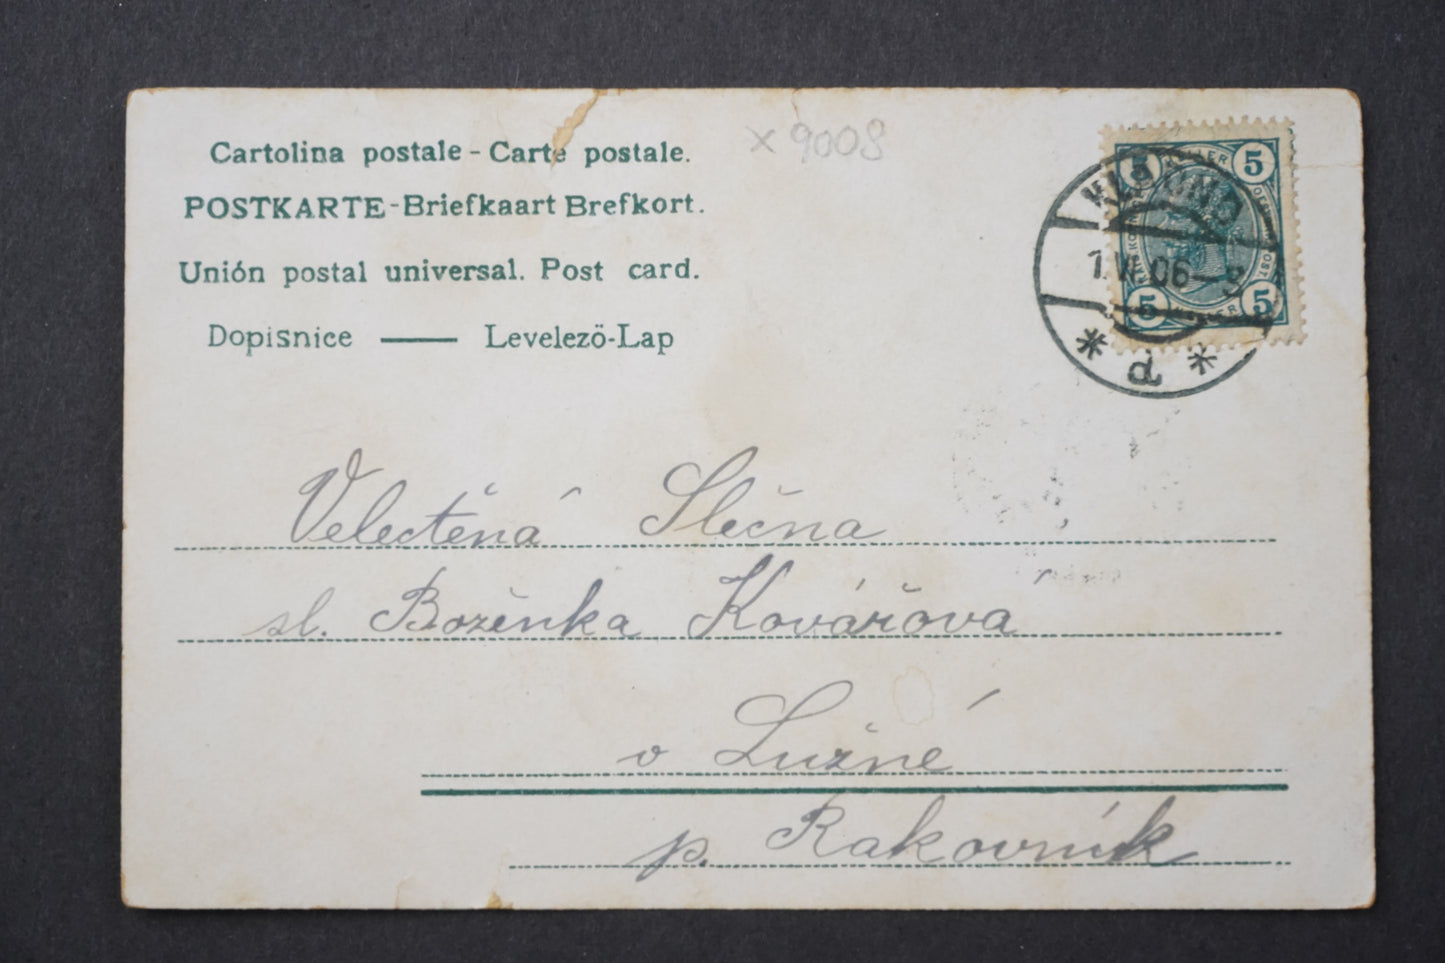 Cartolina postale - Carte postale.
x 9008
POSTKARTE - Briefkaart Brefkort.
Unión postal universal. Post card.
Dopisnice — Levelezö-Lap
5 5
1.VI 06-8
5 5
* d *
Velectěná Slečna
sl. Boženka Kovářova
v Lužné
p. Rakovník